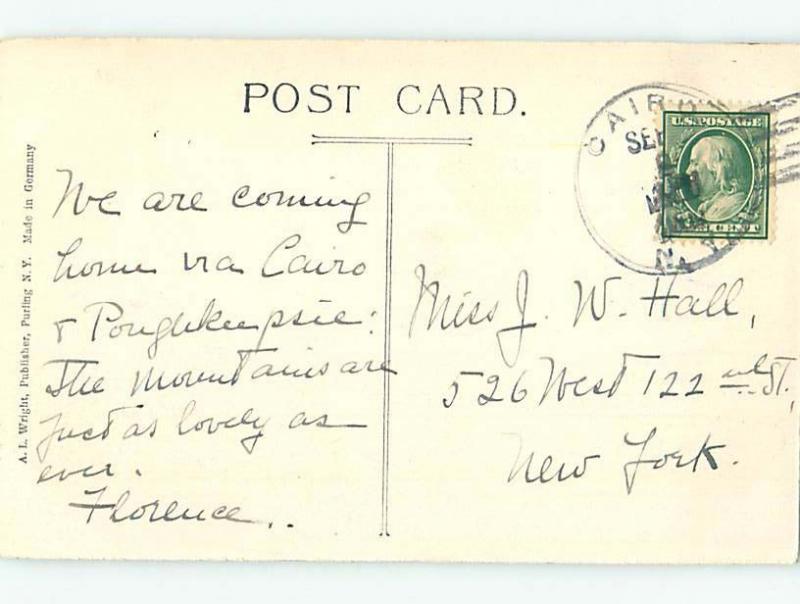 POST CARD.
A. L. Wright, Publisher, Purling N. Y. Made in Germany
CAIRO
SEP
N.Y.
U.S. POSTAGE
We are coming
home via Cairo
& Poughkeepsie:
The mountains are
just as lovely as
ever.
Florence..
Miss J. W. Hall,
526 West 122 nd St.,
New York.